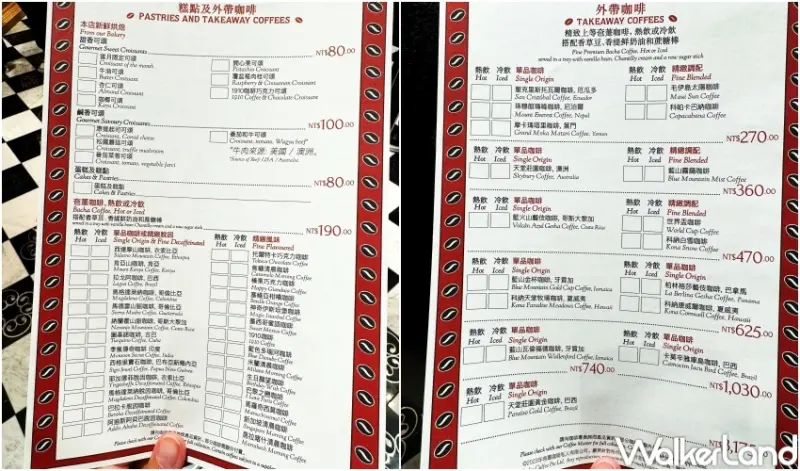 糕點及外帶咖啡
PASTRIES AND TAKEAWAY COFFEES
本店新鮮烘焙
From our Bakery
甜香可頌
Gourmet Sweet Croissants
NT$80.00
當月限定可頌
Croissant of the month
牛油可頌
Butter Croissant
杏仁可頌
Almond Croissant
咖椰可頌
Kaya Croissant
開心果可頌
Pistachio Croissant
覆盆莓肉桂可頌
Raspberry & Cinnamon Croissant
1910咖啡巧克力可頌
1910 Coffee & Chocolate Croissant
鹹香可頌
Gourmet Savoury Croissants
NT$100.00
Croissant, Comté cheese
松露蘑菇可頌
Croissant, truffle mushroom
番茄菜醬可頌
Croissant, tomato, vegetable farci
番茄和牛可頌
Croissant, tomato, Wagyu beef*
*牛肉來源: 美國 / 澳洲。
*Source of Beef: USA / Australia.
蛋糕及糕點
Cakes & Pastries
NT$80.00
蛋糕及糕點
Cakes & Pastries
芭薈咖啡, 熱飲或冷飲
Bacha Coffee, Hot or Iced
NT$190.00
搭配香草豆、香緹鮮奶油和蔗糖棒
served in a tray with vanilla bean, Chantilly cream and a raw sugar stick
熱飲 冷飲 單品咖啡或精緻脫因
Hot Iced Single Origin & Fine Decaffeinated
西達摩山咖啡, 衣索比亞
Sidamo Mountain Coffee, Ethiopia
肯亞山咖啡, 肯亞
Mount Kenya Coffee, Kenya
拉戈阿咖啡, 巴西
Lagoa Coffee, Brazil
馬格達萊納咖啡, 哥倫比亞
Magdalena Coffee, Colombia
Sierra Maba Coffee, Guatemala
納蘭霍山咖啡, 哥斯大黎加
Naranjo Mountain Coffee, Costa Rica
圖基諾咖啡, 古巴
Turquino Coffee, Cuba
季風傳奇咖啡, 印度
Monsoon Secret Coffee, India
Sigri Jewel Coffee, Papua New Guinea
耶加雪菲脫因咖啡, 衣索比亞
Yirgacheffe Decaffeinated Coffee, Ethiopia
馬格達萊納脫因咖啡, 哥倫比亞
Magdalena Decaffeinated Coffee, Colombia
巴拉卡脫因咖啡
Baraka Decaffeinated Coffee
Addis Ababa Decaffeinated Coffee
熱飲 冷飲 精緻風味
Hot Iced Fine Flavoured
托爾特卡巧克力咖啡
Tolteca Chocolate Coffee
Caramelo Morning Coffee
榛果巧克力咖啡
Happy Gianduja Coffee
賽維亞柑橘咖啡
Seville Orange Coffee
神奇伊斯坦堡咖啡
Magic Istanbul Coffee
墨西哥密語咖啡
Mexican Secret Coffee
1910咖啡
1910 Coffee
藍色多瑙河咖啡
Blue Danube Coffee
米蘭清晨咖啡
Milano Morning Coffee
生日願望咖啡
Birthday Wish Coffee
巴黎之戀咖啡
I Love Paris Coffee
馬羅奇諾晨咖啡
新加坡清晨咖啡
Singapore Morning Coffee
曼哈頓清晨咖啡
Manhattan Morning Coffee
外帶咖啡
TAKEAWAY COFFEES
精緻上等芭薈咖啡, 熱飲或冷飲
搭配香草豆、香緹鮮奶油和蔗糖棒
Fine Premium Bacha Coffee, Hot or Iced
served in a tray with vanilla bean, Chantilly cream and a raw sugar stick
熱飲 冷飲 單品咖啡
Hot Iced Single Origin
聖克里斯托瓦爾咖啡, 厄瓜多
San Cristóbal Coffee, Ecuador
珠穆朗瑪峰咖啡, 尼泊爾
Mount Everest Coffee, Nepal
摩卡瑪塔里咖啡, 葉門
Grand Moka Matari Coffee, Yemen
熱飲 冷飲 精緻調配
Hot Iced Fine Blended
毛伊島太陽咖啡
Maui Sun Coffee
科帕卡巴納咖啡
Copacabana Coffee
NT$270.00
熱飲 冷飲 單品咖啡
Hot Iced Single Origin
天堂莊園咖啡, 澳洲
Skybury Coffee, Australia
熱飲 冷飲 精緻調配
Hot Iced Fine Blended
藍山霧靄咖啡
Blue Mountain Mist Coffee
NT$360.00
熱飲 冷飲 單品咖啡
Hot Iced Single Origin
藍火山藝伎咖啡, 哥斯大黎加
Volcán Azul Gesha Coffee, Costa Rica
熱飲 冷飲 精緻調配
Hot Iced Fine Blended
世界盃咖啡
World Cup Coffee
科納白雪咖啡
Kona Snow Coffee
NT$470.00
熱飲 冷飲 單品咖啡
Hot Iced Single Origin
藍山金杯咖啡, 牙買加
Blue Mountain Gold Cup Coffee, Jamaica
科納天堂牧場咖啡, 夏威夷
Kona Paradise Meadows Coffee, Hawaii
熱飲 冷飲 單品咖啡
Hot Iced Single Origin
柏林娜莎藝伎咖啡, 巴拿馬
La Berlina Gesha Coffee, Panama
科納康威爾咖啡, 夏威夷
Kona Cornwell Coffee, Hawaii
NT$625.00
熱飲 冷飲 單品咖啡
Hot Iced Single Origin
藍山瓦倫福德咖啡, 牙買加
Blue Mountain Wallenford Coffee, Jamaica
NT$740.00
熱飲 冷飲 單品咖啡
Hot Iced Single Origin
卡莫辛雅庫鳥咖啡, 巴西
Camocim Jacu Bird Coffee, Brazil
NT$1,030.00
熱飲 冷飲 單品咖啡
Hot Iced Single Origin
天堂莊園黃金咖啡, 巴西
Paraíso Gold Coffee, Brazil
WalkerLand